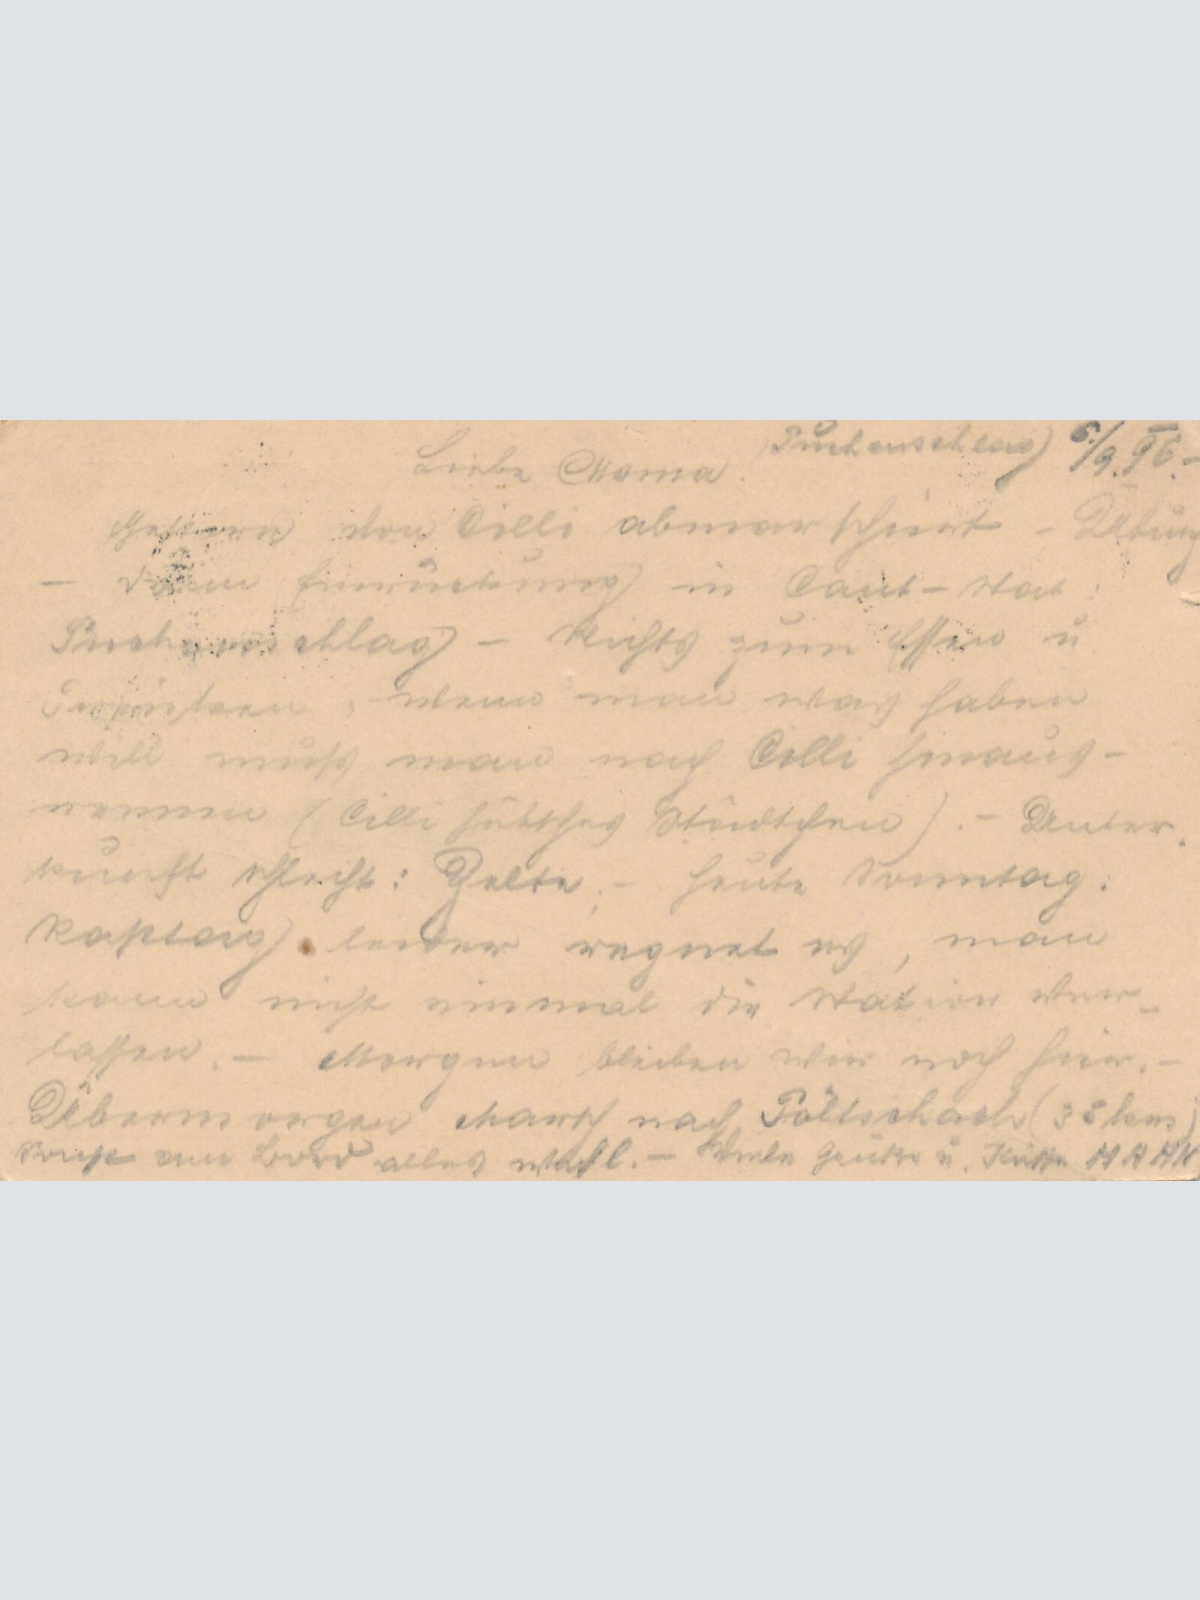 Liebe Mama! Puchenschlag 6/9. 96.-
Gestern von Cilli abmarschiert - Übung
- dann Einrückung in Cant-Stat:
Puchenschlag - Nichts zum Essen u
Trinken, - wenn man was haben
will muß man nach Cilli hinaus-
rennen (Cilli hübsches Städtchen). - Unter-
kunft schlecht: Zelte, - heute Sonntag:
Rasttag leider regnet es, man
kann nicht einmal die Station ver-
lassen. - Morgen bleiben wir noch hier. -
Übermorgen Marsch nach Pöltschach (35 km)
Sonst an Bord alles wohl. - Viele Grüße u. Küsse